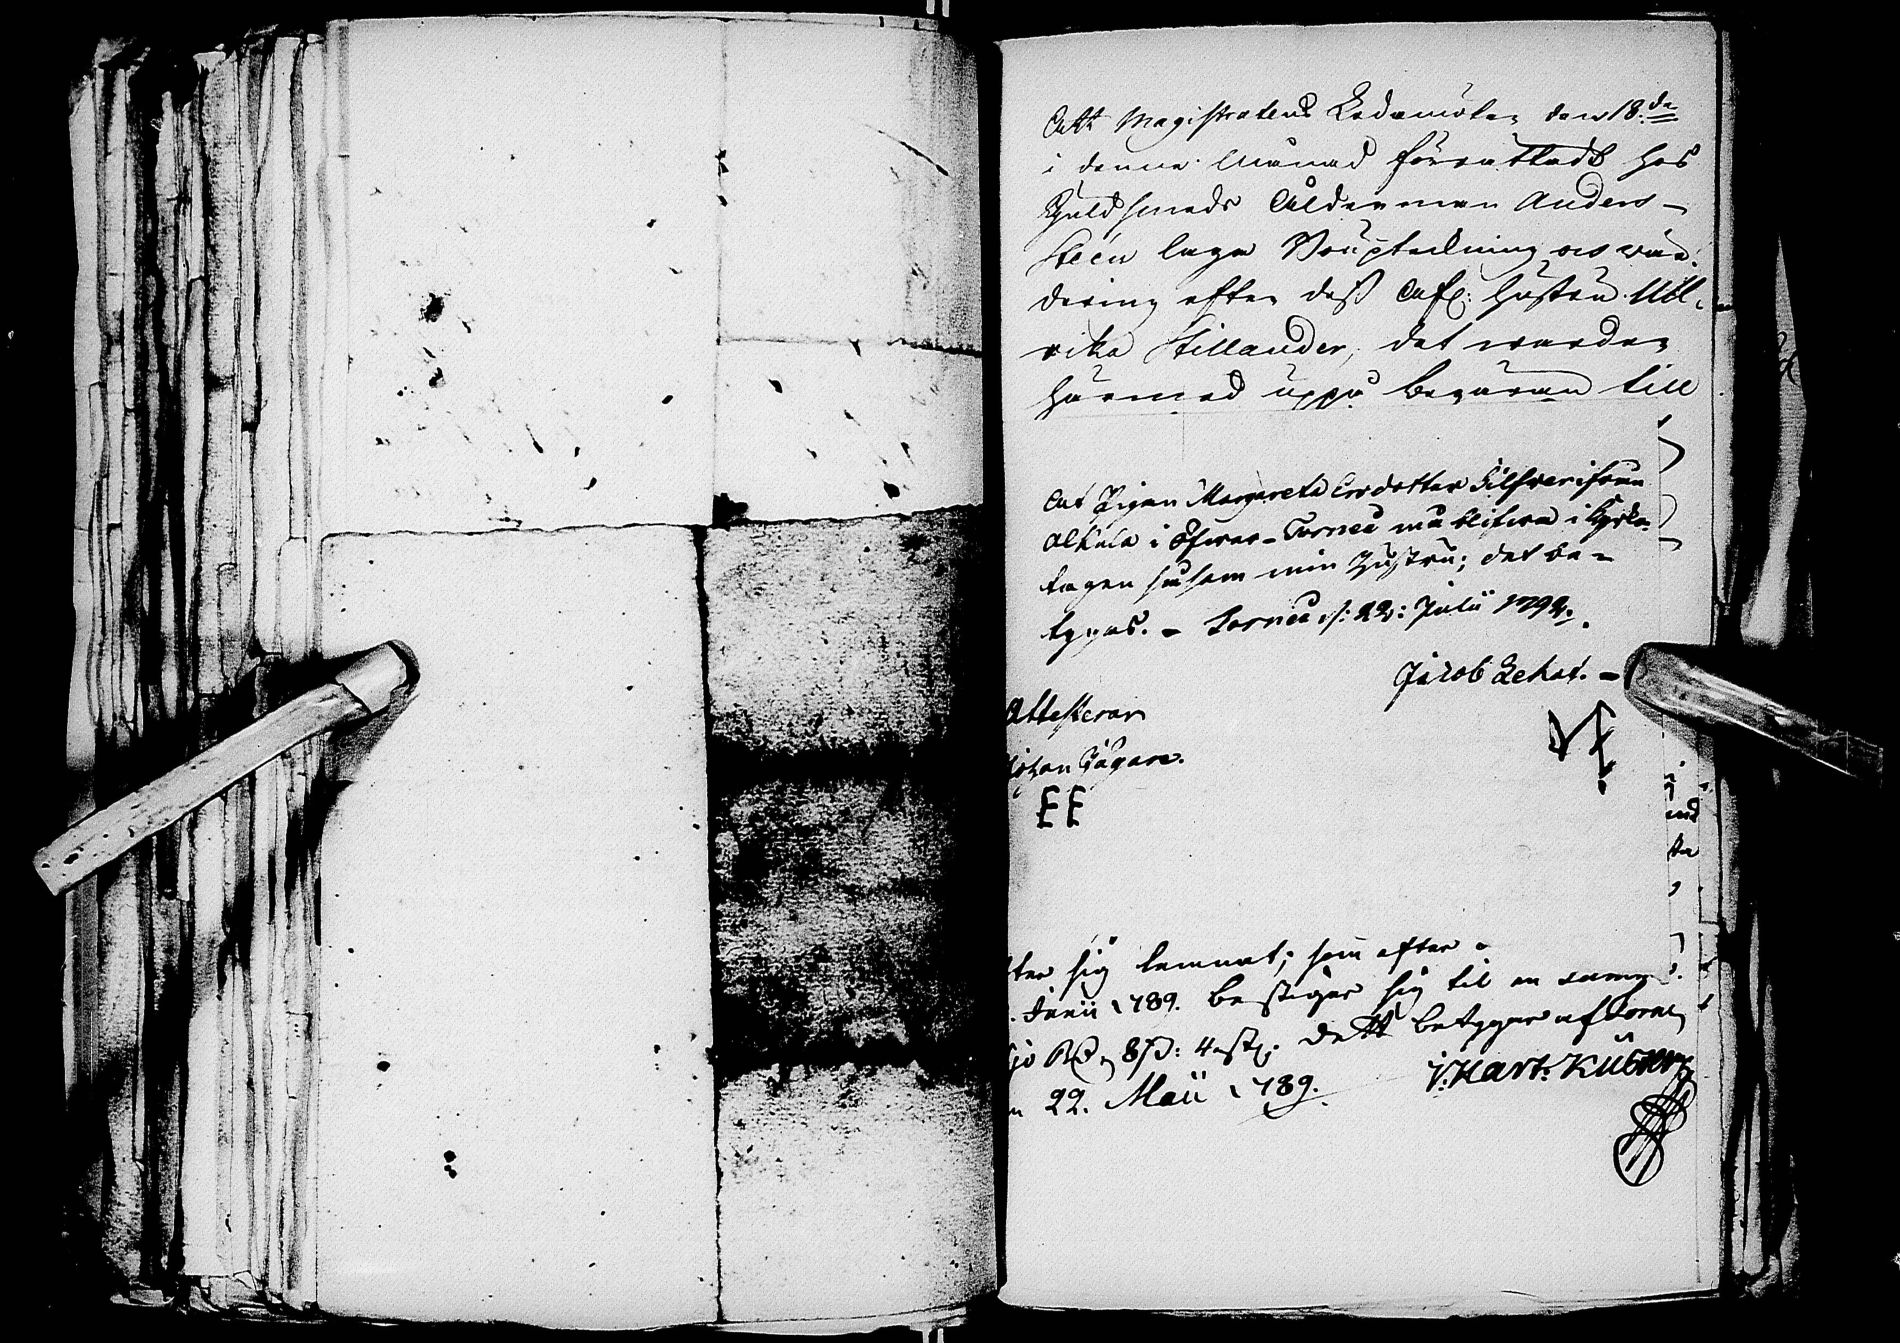 Att Magistratens Ledamöter den 18:de
i denna Månad förrättadt hos
Guldsmeds Ålderman Anders
Steen laga Boupteckning och vär-
dering efter dess Afl: hustru Ul-
rica Stillander, det warder
härmed uppå begäran till
At Pigan Margareta Ersdotter Silfwer ifrån
Alkula i Öfwer-Torneå må blifwa i Kyrkan
tagen såsom min Hustru; det be-
tygas. - Torneå d: 22: Julii 1792.
Jacob Lehat.
Attesterar
Johan Jägare.
EE
ter sig lemnat; som efter
Junii 1789. bestiger sig til en summa
RD 8 s: 4 rst: Dett betygar af Torne
22. Maii 1789. J: Mart: Kübler